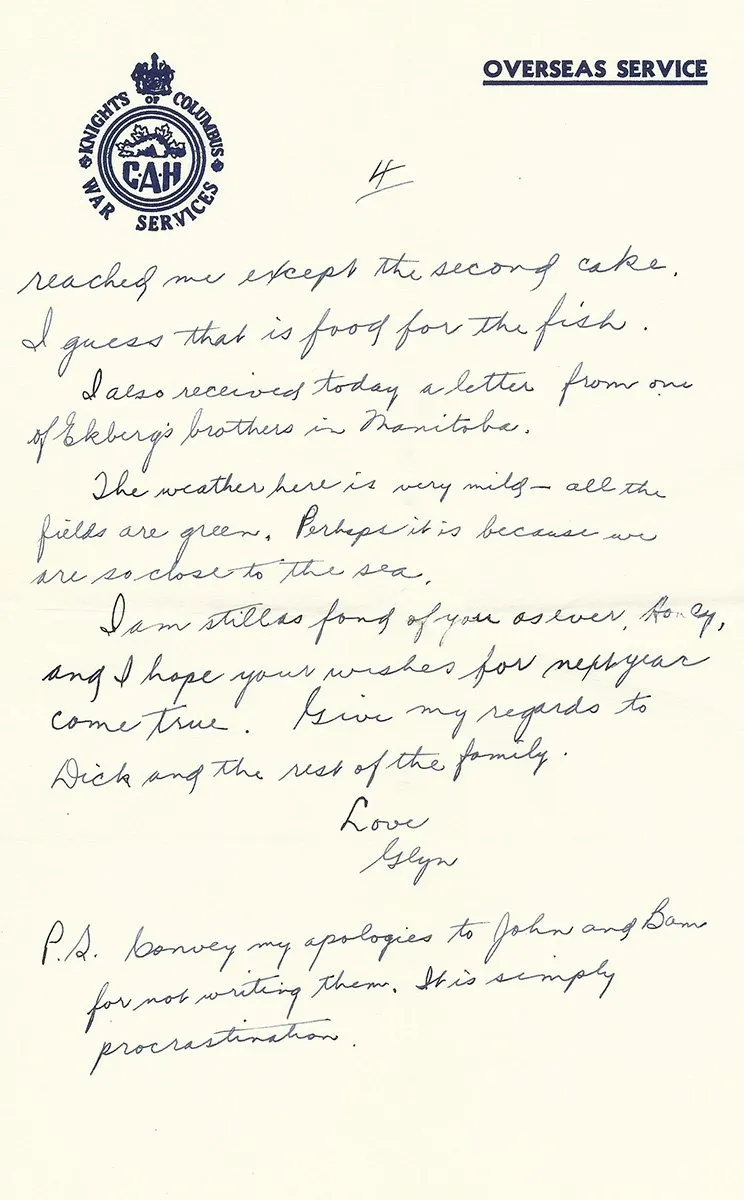 OVERSEAS SERVICE
KNIGHTS OF COLUMBUS
C·A·H
WAR SERVICES
4
reached me except the second cake.
I guess that is food for the fish.
I also received today a letter from one
of Ekberg's brothers in Manitoba.
The weather here is very mild – all the
fields are green. Perhaps it is because we
are so close to the sea.
I am still as fond of you as ever, Honey,
and I hope your wishes for next year
come true. Give my regards to
Dick and the rest of the family.
Love
Glyn
P.S. Convey my apologies to John and Bam
for not writing them. It is simply
procrastination.